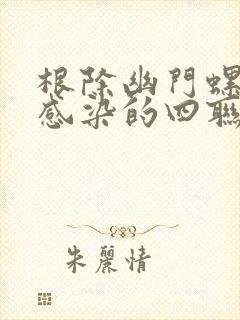 根除幽門螺
感染的四聯
朱麗情